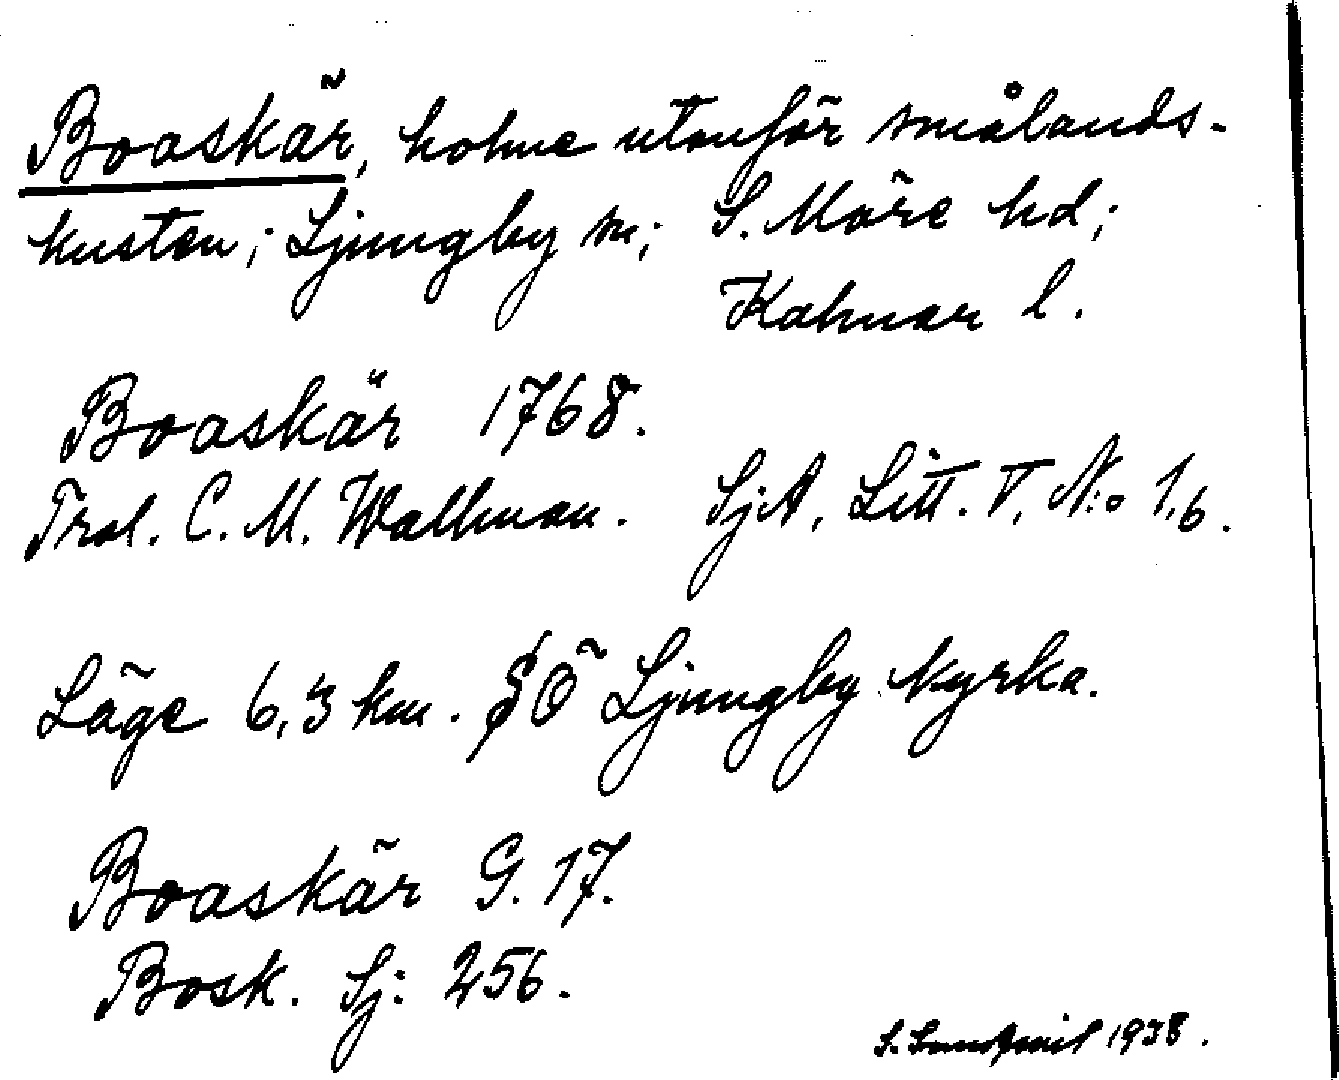 Boaskär, holme utanför smålands-
kusten; Ljungby sn; S. Möre hd;
Kalmar l.
Boaskär 1768.
Trol. C. M. Wallman. SjA, Litt. T, N:o 1,6.
Läge 6,3 km. SÖ Ljungby kyrka.
Boaskär G. 17.
Bosk. Sj: 256.
S. 1938.